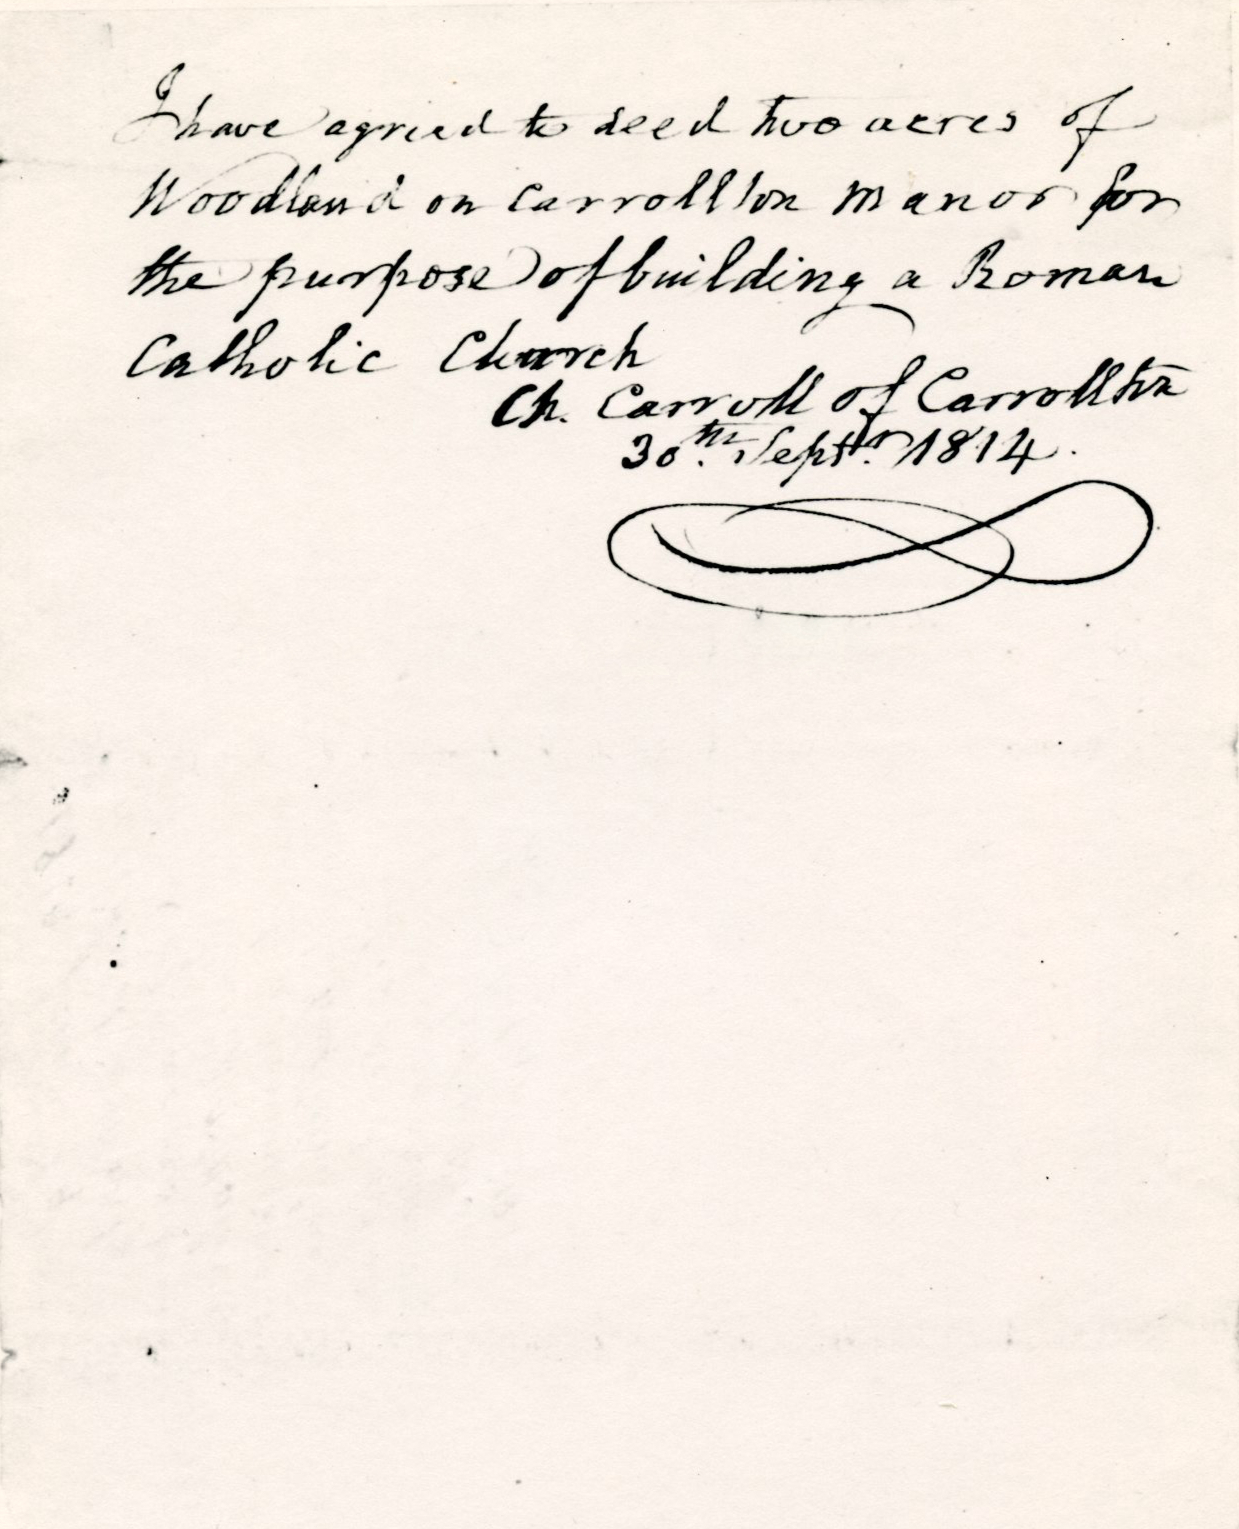 I have agreed to deed two acres of
Woodland on Carrollton Manor for
the purpose of building a Roman
Catholic Church
Ch. Carroll of Carrollton
30th. Septr. 1814.